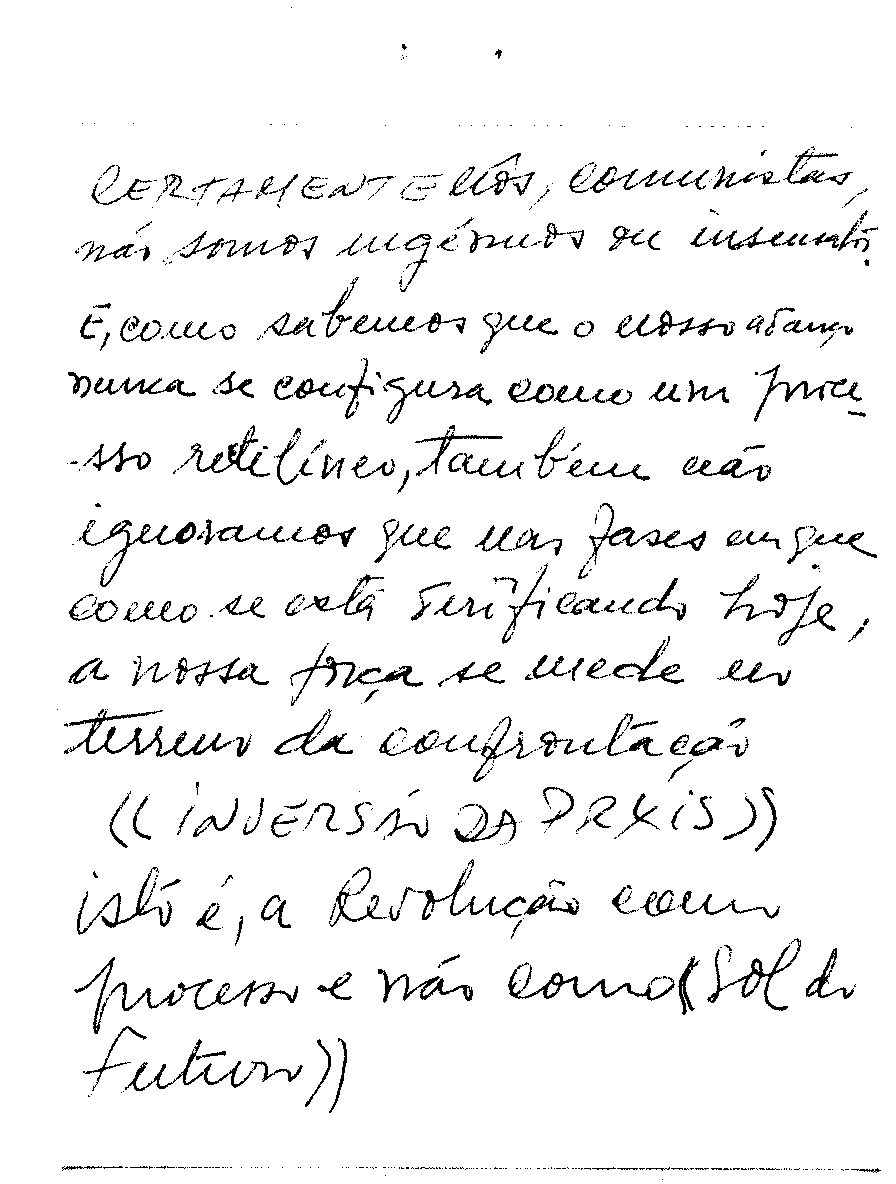 CERTAMENTE nós, comunistas,
não somos ingênuos ou insensatos.
E, como sabemos que o nosso avanço
nunca se configura como um proce-
sso retilíneo, também não
ignoramos que nas fases em que
como se está verificando hoje,
a nossa força se mede no
terreno da confrontação
((INVERSÃO DA PRXIS))
isto é, a Revolução como
processo e não como ((Sol do
Futuro))